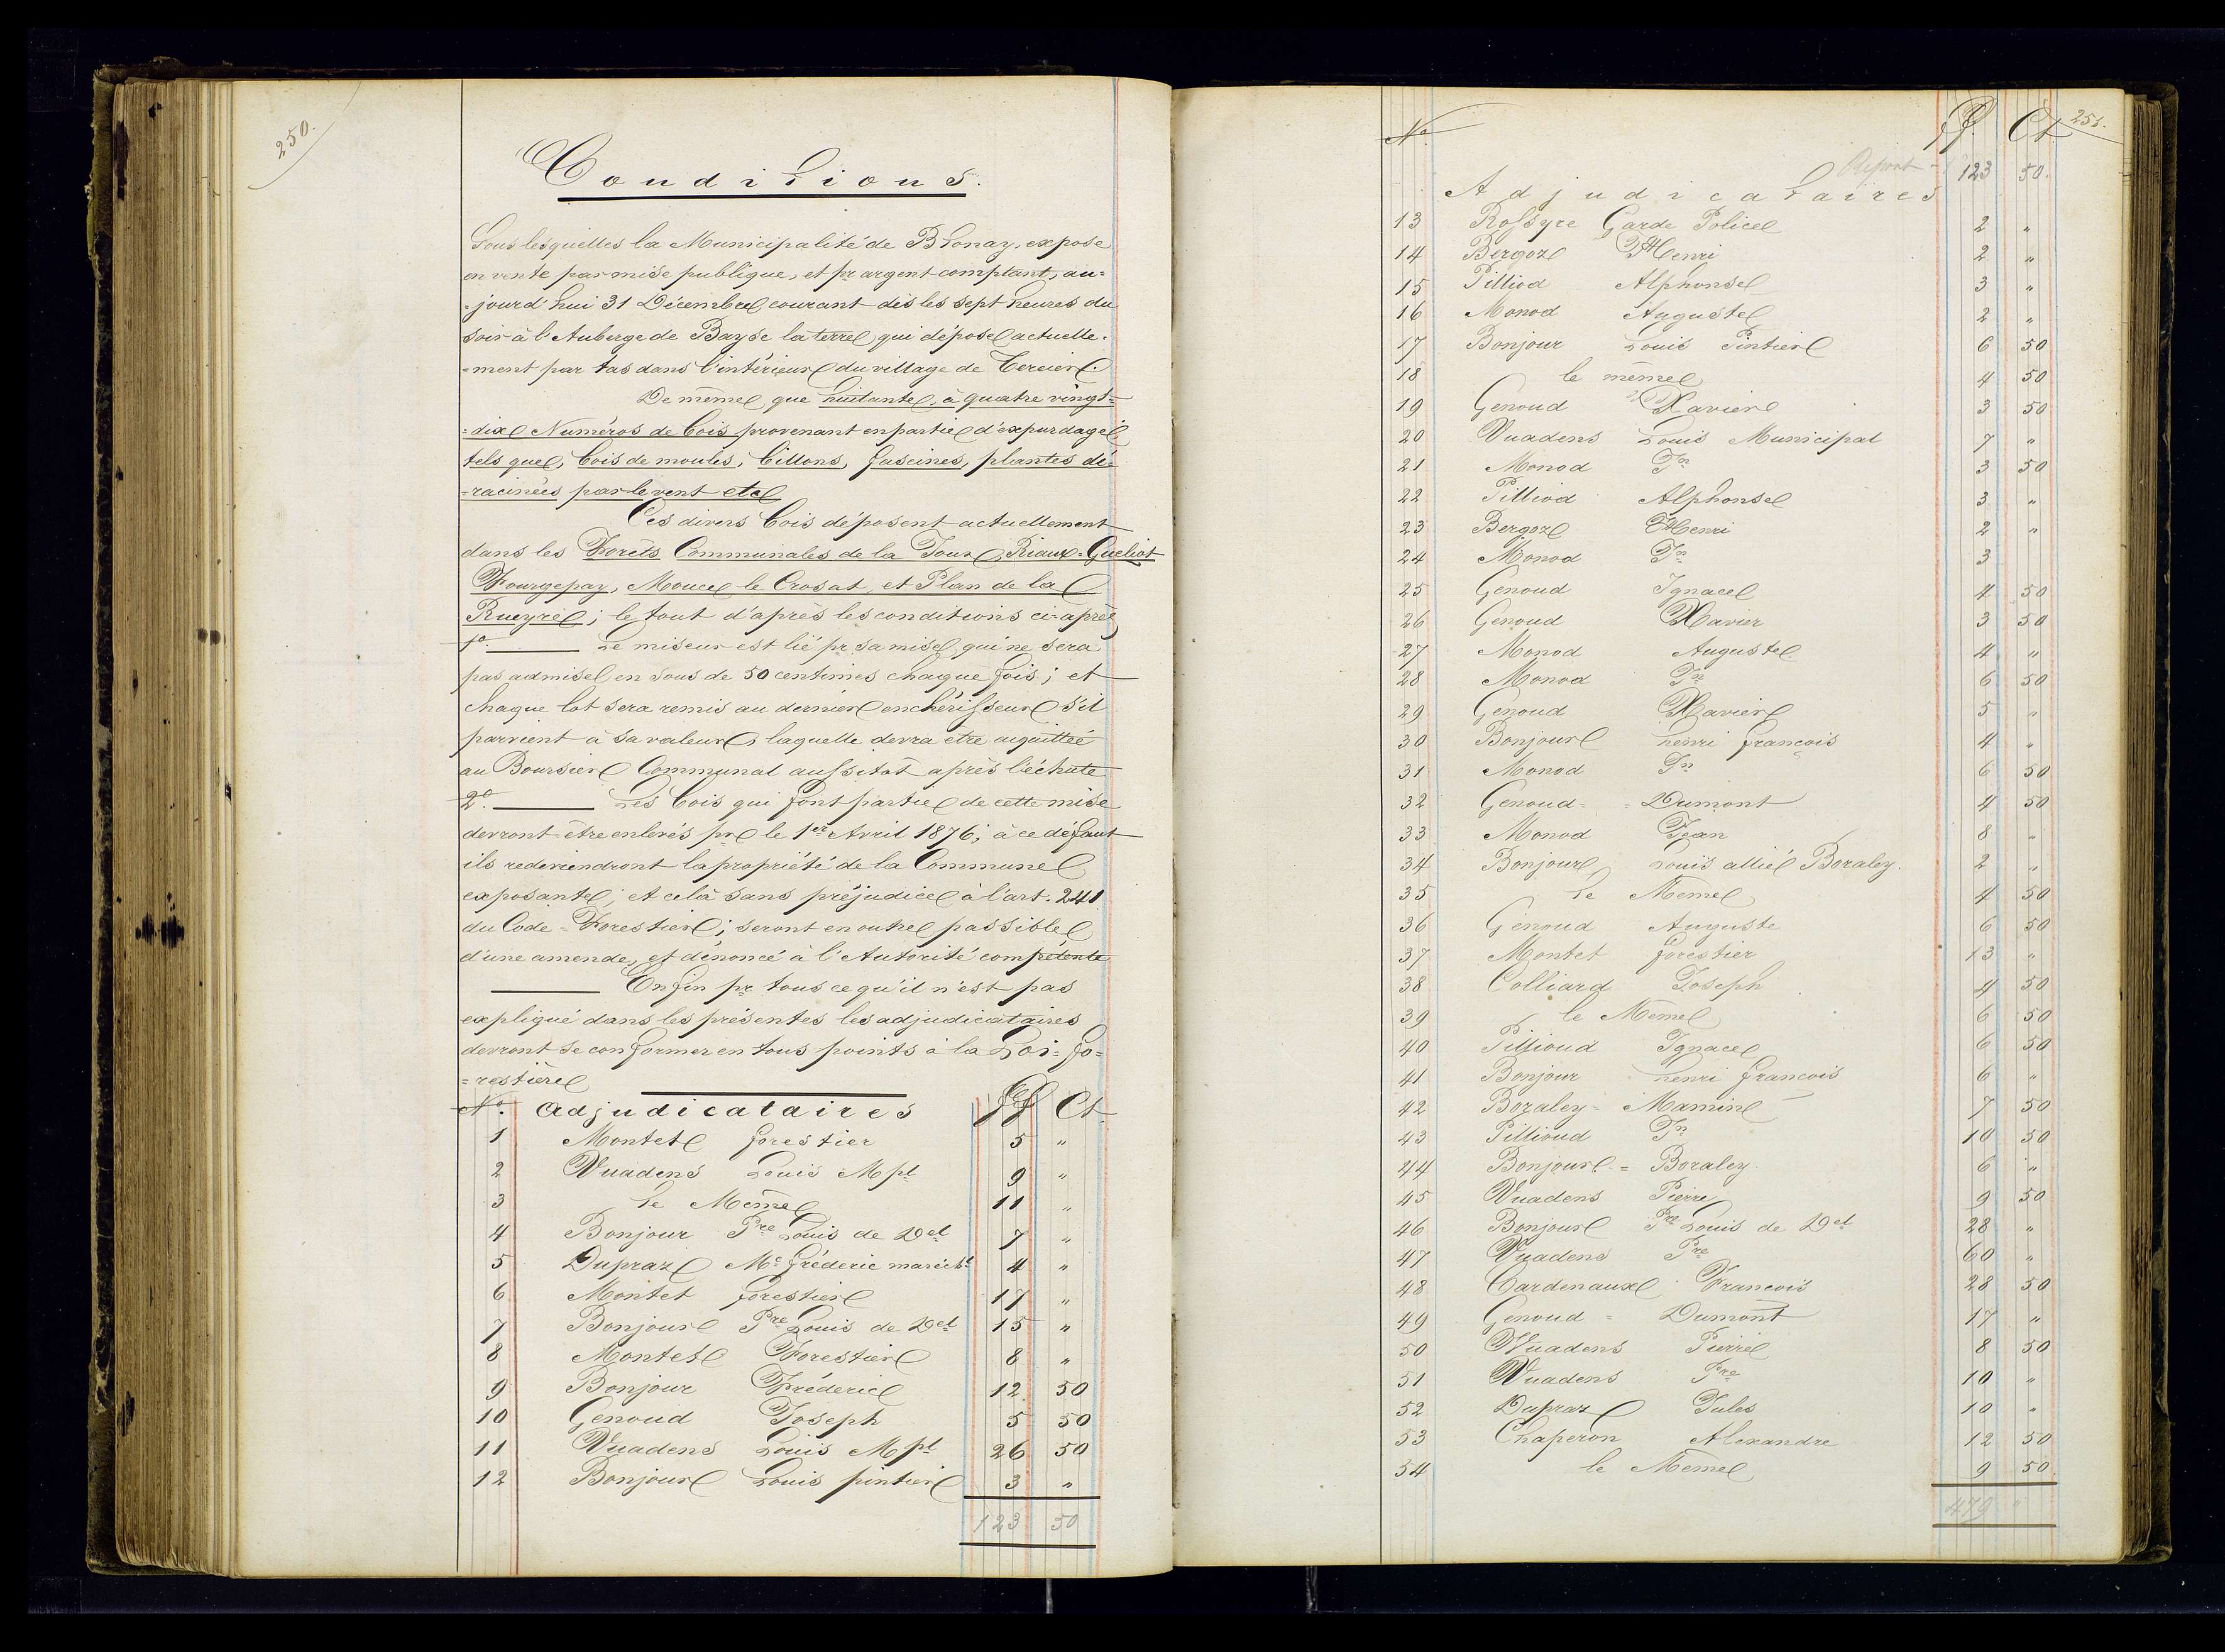 250.
Conditions.
Sous lesquelles la Municipalité de Blonay, expose
en vente par mise publique, et pr argent comptant, au=
=jourd'hui 31 Décembre courant dès les sept heures du
soir à l'Auberge de Bayse la terre qui dépose actuelle=
=ment par tas dans l'intérieur du village de Tercier.
De même que huitante, à quatre vingt=
=dix Numéros de bois provenant en partie d'expurdage,
tels que, bois de moules, billons, fascines, plantes dé=
=racinées par le vent etc
Ces divers bois déposent actuellement
dans les Forêts Communales de la Tour, Riaux=Gueliot
Fourgepay, Mouce le Crosat, et Plan de la
Rueyre; le tout d'après les conditions ci=après
1o. Le miseur est lié pr sa mise, qui ne sera
pas admise en sous de 50 centimes chaque fois; et
chaque lot sera remis au dernier enchérisseur s'il
parvient à sa valeur, laquelle devra etre aiquittée
au Boursier Communal aussitôt après l'échute
2o. Les bois qui font partie de cette mise
devront être enlevés pr le 1er Avril 1876; à ce défaut
ils redeviendront la propriété de la Commune
exposante; et celà sans préjudice à l'art. 241
du Code=Forestier; seront en outre passible
d'une amende, et dénoncé à l'Autorité compétente
Enfin pr tous ce qu'il n'est pas
expliqué dans les présentes les adjudicataires
devront se conformer en tous points à la Loi=fo=
=restière
No. adjudicataires ff Ct.
1 Montet forestier 5 "
2 Vuadens Louis Mpl 9 "
3 le Même 11 "
4 Bonjour Pre Louis de Del 7 "
5 Dupraz Mc fréderic maréchl 4 "
6 Montet forestier 17 "
7 Bonjour Pre Louis de Del 15 "
8 Montet Forestier 8 "
9 Bonjour Fréderic 12 50
10 Genoud Joseph 5 50
11 Vuadens Louis Mpl 26 50
12 Bonjour Louis pintier 3 "
123 50
251.
No ff. Ct
Report 123 50.
Adjudicataires
13 Rossyre Garde Police 2 "
14 Bergoz Henri 2 "
15 Pilliod Alphonse 3 "
16 Monod Auguste 2 "
17 Bonjour Louis Pintier 6 50
18 le même 4 50
19 Genoud Xavier 3 50
20 Vuadens Louis Municipal 7 "
21 Monod Jn 3 50
22 Pilliod Alphonse 3 "
23 Bergoz Henri 2 "
24 Monod Jn 3
25 Genoud Ignace 4 50
26 Genoud Xavier 3 50
27 Monod Auguste 4 "
28 Monod Jn 6 50
29 Genoud Xavier 5 "
30 Bonjour henri françois 4 "
31 Monod Jn 6 50
32 Genoud= =Dumont 4 50
33 Monod Jean 8 "
34 Bonjour, Louis allié Boraley. 2 "
35 le Même 4 50
36 Genoud Auguste 6 50
37 Montet forestier 13 "
38 Colliard Joseph 4 50
39 le Même 6 50
40 Pillioud Ignace 6 50
41 Bonjour henri francois 6 "
42 Boraley= Mamin 7 50
43 Pillioud Jn 10 50
44 Bonjour= Boraley. 6 "
45 Vuadens Pierre 9 50
46 Bonjour Pre Louis de Del 28 "
47 Vuadens Pre 60 "
48 Cardenaux Francois 28 50
49 Genoud = Dumont 17 "
50 Vuadens Pierre 8 50
51 Vuadens Pre 10 "
52 Dupraz Jules 10 "
53 Chaperon Alexandre 12 50
54 le Même 9 50
479 "